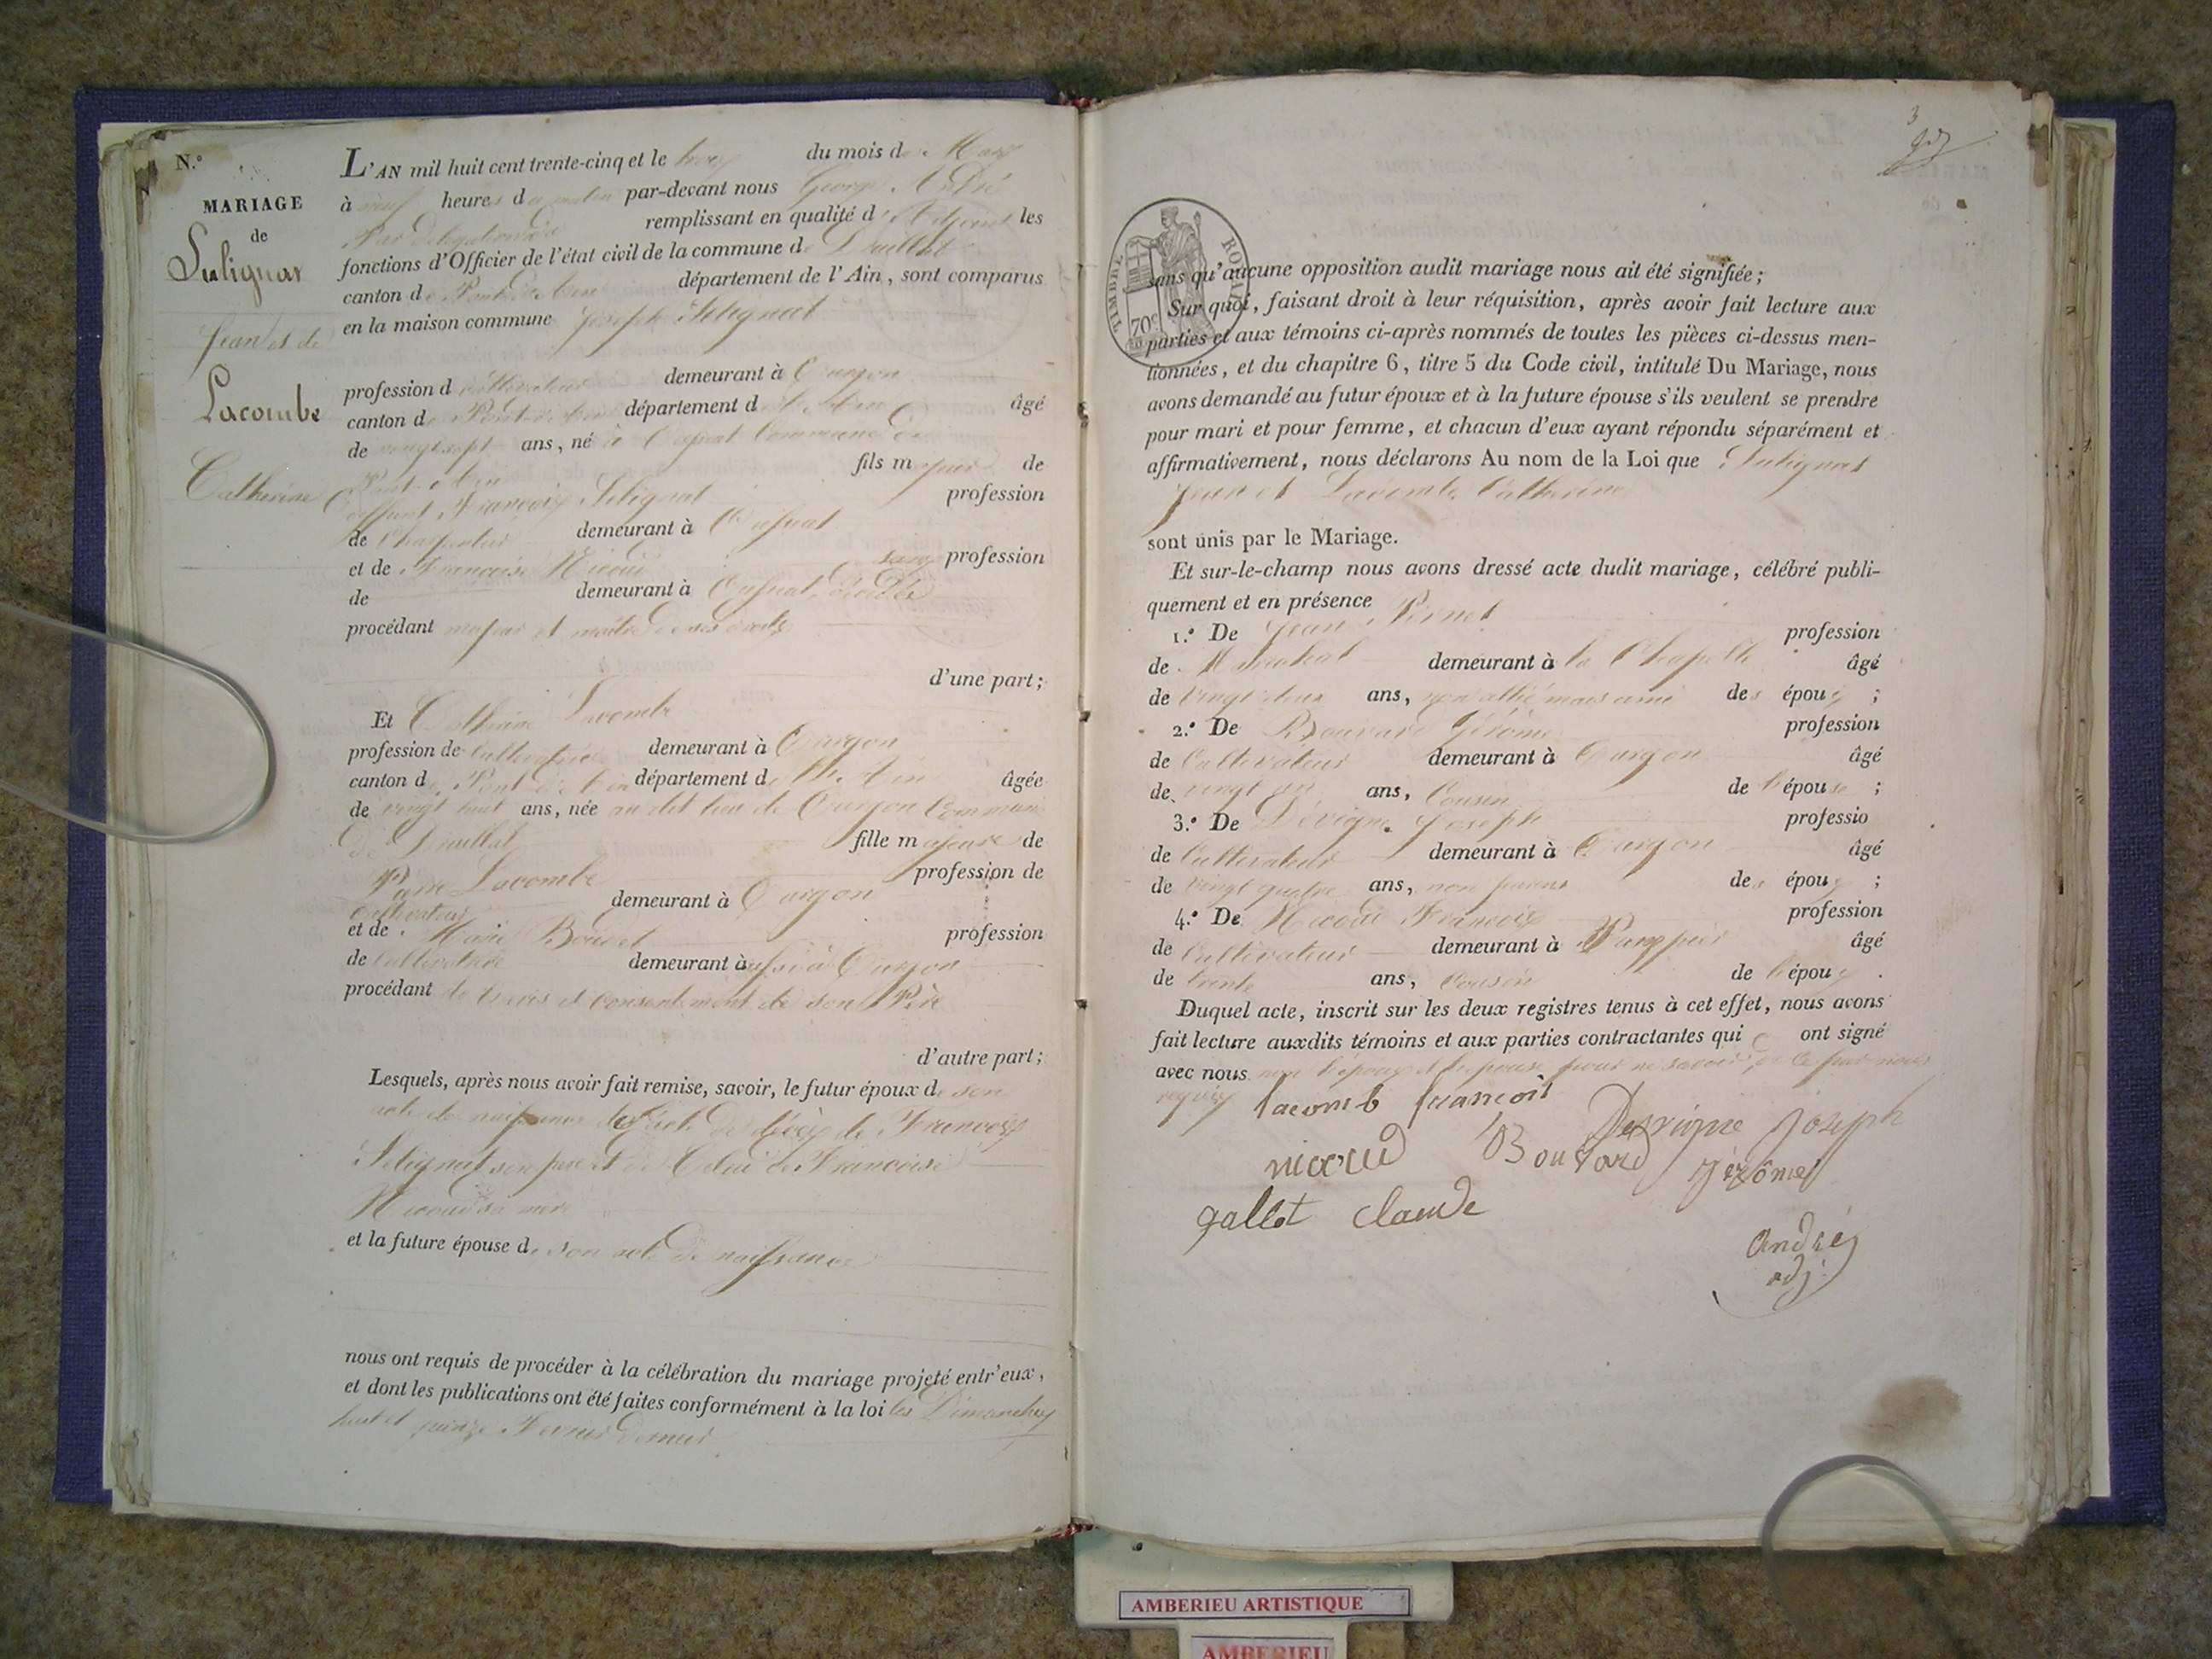 N.°
MARIAGE
de
Sulignat
Jean et de
Lacombe
Catherine
L'AN mil huit cent trente-cinq et le trois du mois de Mars
à neuf heures du matin par-devant nous George André
Par délégation remplissant en qualité d'Adjoint les
fonctions d'Officier de l'état civil de la commune de Druillat
canton de Pont d'Ain département de l'Ain, sont comparus
en la maison commune Joseph Sulignat
profession de cultivateur demeurant à Turgon
canton de Pont d'Ain département de l'Ain âgé
de vingt sept ans, né à commune de
Pont d'Ain fils majeur de
François Sulignat profession
de Charpentier demeurant à
et de Françoise Nicoud sans profession
de demeurant à
procédant majeur et maître de ses droits
d'une part;
Et Catherine Lacombe
profession de Cultivatrice demeurant à Turgon
canton de Pont d'Ain département de l'Ain âgée
de vingt huit ans, née au dit lieu de Turgon Commune
de Druillat fille majeure de
Pierre Lacombe profession de
cultivateur demeurant à Turgon
et de Marie profession
de Cultivatrice demeurant à Turgon
procédant de l'avis et consentement de son Père
d'autre part;
Lesquels, après nous avoir fait remise, savoir, le futur époux de son
acte de naissance de l'acte de décès de François
Sulignat son père et de Celui de Françoise
Nicoud sa mère
et la future épouse de son acte de naissance
nous ont requis de procéder à la célébration du mariage projeté entr'eux,
et dont les publications ont été faites conformément à la loi les Dimanches
huit et quinze Février dernier
3
TIMBRE ROYAL
70c
sans qu'aucune opposition audit mariage nous ait été signifiée;
Sur quoi, faisant droit à leur réquisition, après avoir fait lecture aux
parties et aux témoins ci-après nommés de toutes les pièces ci-dessus men-
tionnées, et du chapitre 6, titre 5 du Code civil, intitulé Du Mariage, nous
avons demandé au futur époux et à la future épouse s'ils veulent se prendre
pour mari et pour femme, et chacun d'eux ayant répondu séparément et
affirmativement, nous déclarons Au nom de la Loi que Sulignat
Jean et Lacombe Catherine
sont unis par le Mariage.
Et sur-le-champ nous avons dressé acte dudit mariage, célébré publi-
quement et en présence
1.° De Jean Pernet profession
de Maréchal demeurant à la Chapelle âgé
de vingt deux ans, non allié mais ami des époux;
2.° De Bouvard Jérôme profession
de Cultivateur demeurant à Turgon âgé
de vingt un ans, Cousin de l'épouse;
3.° De Dévigne Joseph professio
de Cultivateur demeurant à Turgon âgé
de vingt quatre ans, non parent des époux;
4.° De Nicoud François profession
de Cultivateur demeurant à âgé
de trente ans, Cousin de l'époux.
Duquel acte, inscrit sur les deux registres tenus à cet effet, nous avons
fait lecture auxdits témoins et aux parties contractantes qui ont signé
avec nous non l'époux et l'épouse pour ne savoir de ce par nous
requis
lacomb françois
Desvigne Joseph
nicoud
Bouvard Jérôme
gallet claude
André
adj.
AMBERIEU ARTISTIQUE
AMBERIEU